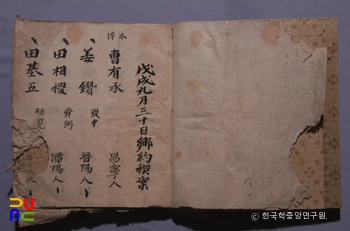 戊戌九月三十日鄕約稧案
本倅
曺有承 昌寧人
姜鑽 致中 晉陽人
田相稷 舜弼 潭陽人
田基五
ⓒ 한국학중앙연구원